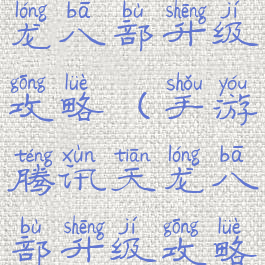 lóng bā bù shēng jí
龙八部升级
gōng lüè shǒu yóu
攻略（手游
téng xùn tiān lóng bā
腾讯天龙八
bù shēng jí gōng lüè
部升级攻略